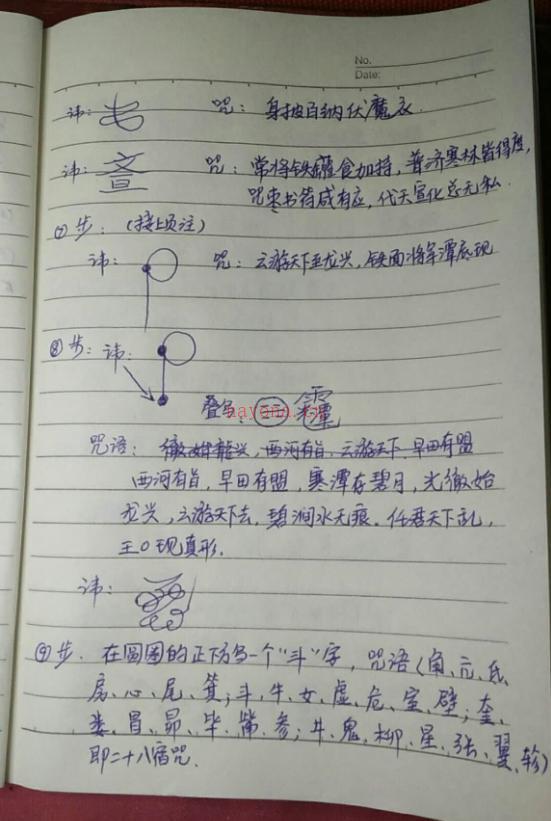 No.
Date:
讳: 咒: 身披百纳伏魔衣.
讳: 咒: 常将铁罐食加持, 普济寒林皆得度,
咒枣书符咸有应, 代天宣化总无私.
⑦步: (接上页注)
讳: 咒: 云游天下至龙兴, 铁面将军潭底现
⑧步: 讳:
叠写:
nayona.cn
咒语: 西河有旨, 云游天下, 早田有盟
西河有旨, 早田有盟, 寒潭存碧月, 光彻始
龙兴, 云游天下去, 碧涧水无痕. 任君天下乱,
王〇现真形.
讳:
⑨步. 在圆圈的正下方写一个"斗"字, 咒语(角、亢、氐、
房、心、尾、箕; 斗、牛、女、虚、危、室、壁; 奎、
娄、胃、昴、毕、觜、参; 井、鬼、柳、星、张、翼、轸)
即二十八宿咒.